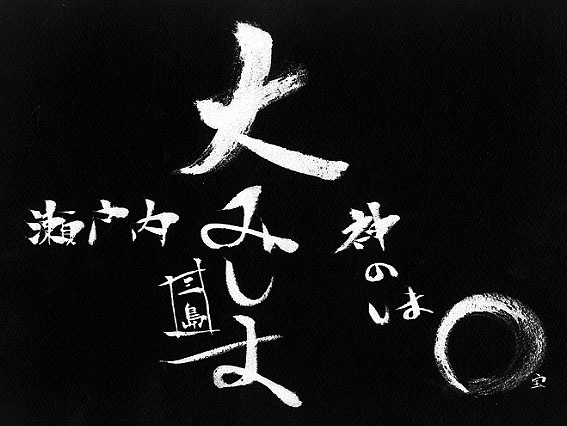 大みしま
三島
瀬戸内
神のしま